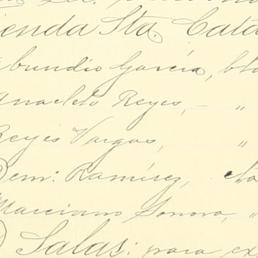 ienda Sta. Cata
bundio García, bla
anacleto Reyes, - "
Reyes Vargas, "
Dem: Ramírez, cha
Marciano Sonora, "
Salas: para ex